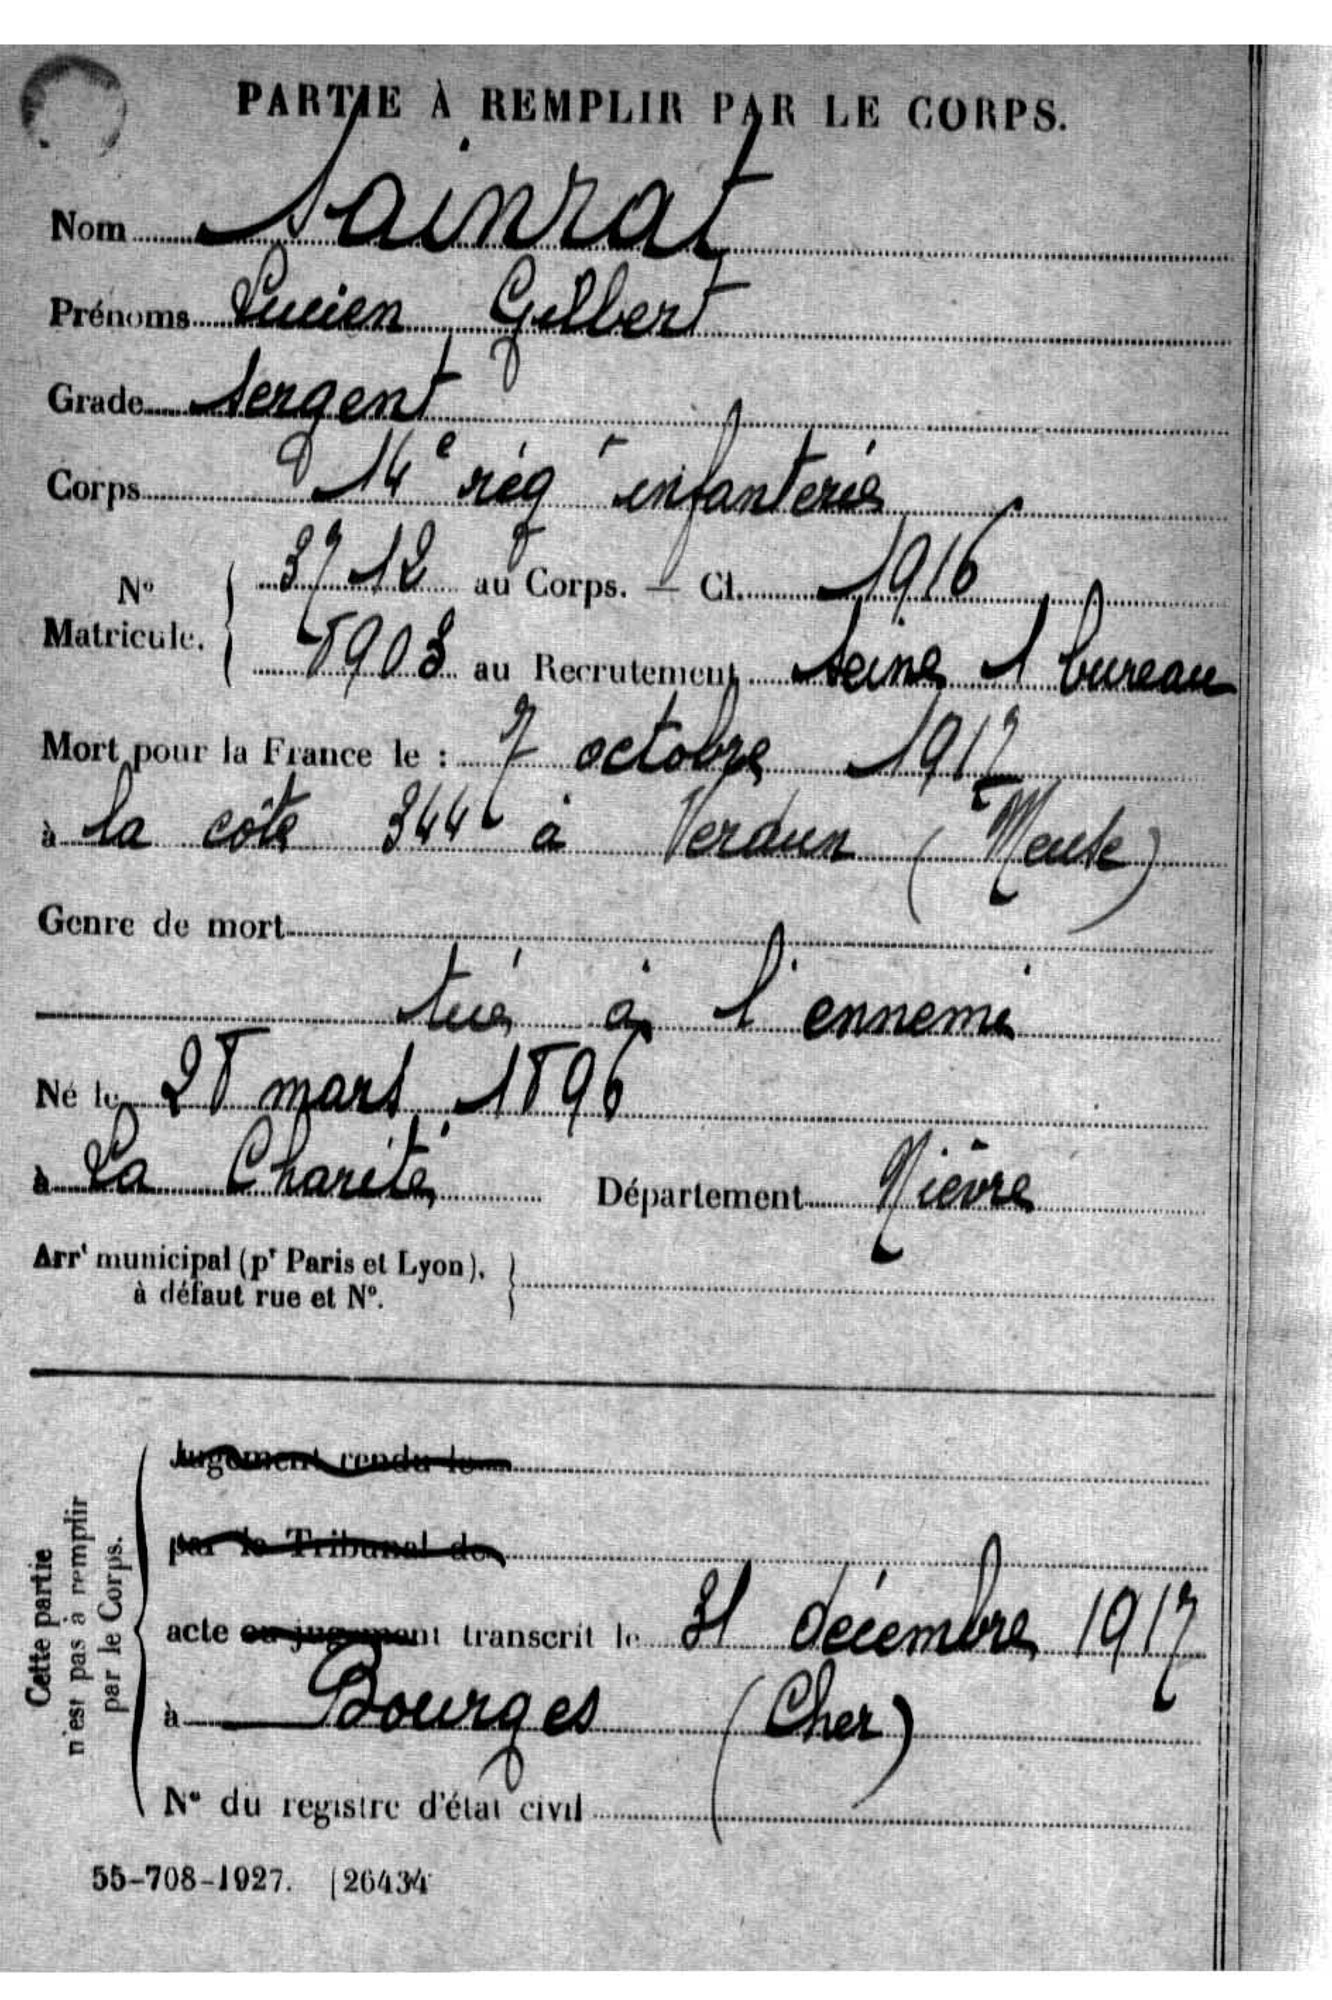 PARTIE À REMPLIR PAR LE CORPS.
Nom Sainrat
Prénoms Lucien Gilbert
Grade Sergent
Corps 14e rég t infanterie
No Matricule. 3712 au Corps. — Cl. 1916
8903 au Recrutement Seine 1 bureau
Mort pour la France le : 7 octobre 1917
à la côte 344 à Verdun (Meuse)
Genre de mort
tué à l'ennemi
Né le 28 mars 1896
à La Charité Département Nièvre
Arrt municipal (pr Paris et Lyon),
à défaut rue et No.
Cette partie
n'est pas à remplir
par le Corps.
Jugement rendu le
par le Tribunal de
acte ou jugement transcrit le 31 décembre 1917
à Bourges (Cher)
No du registre d'état civil
55-708-1927. [26434